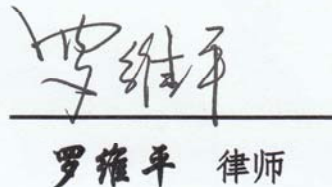 罗维平
罗维平 律师